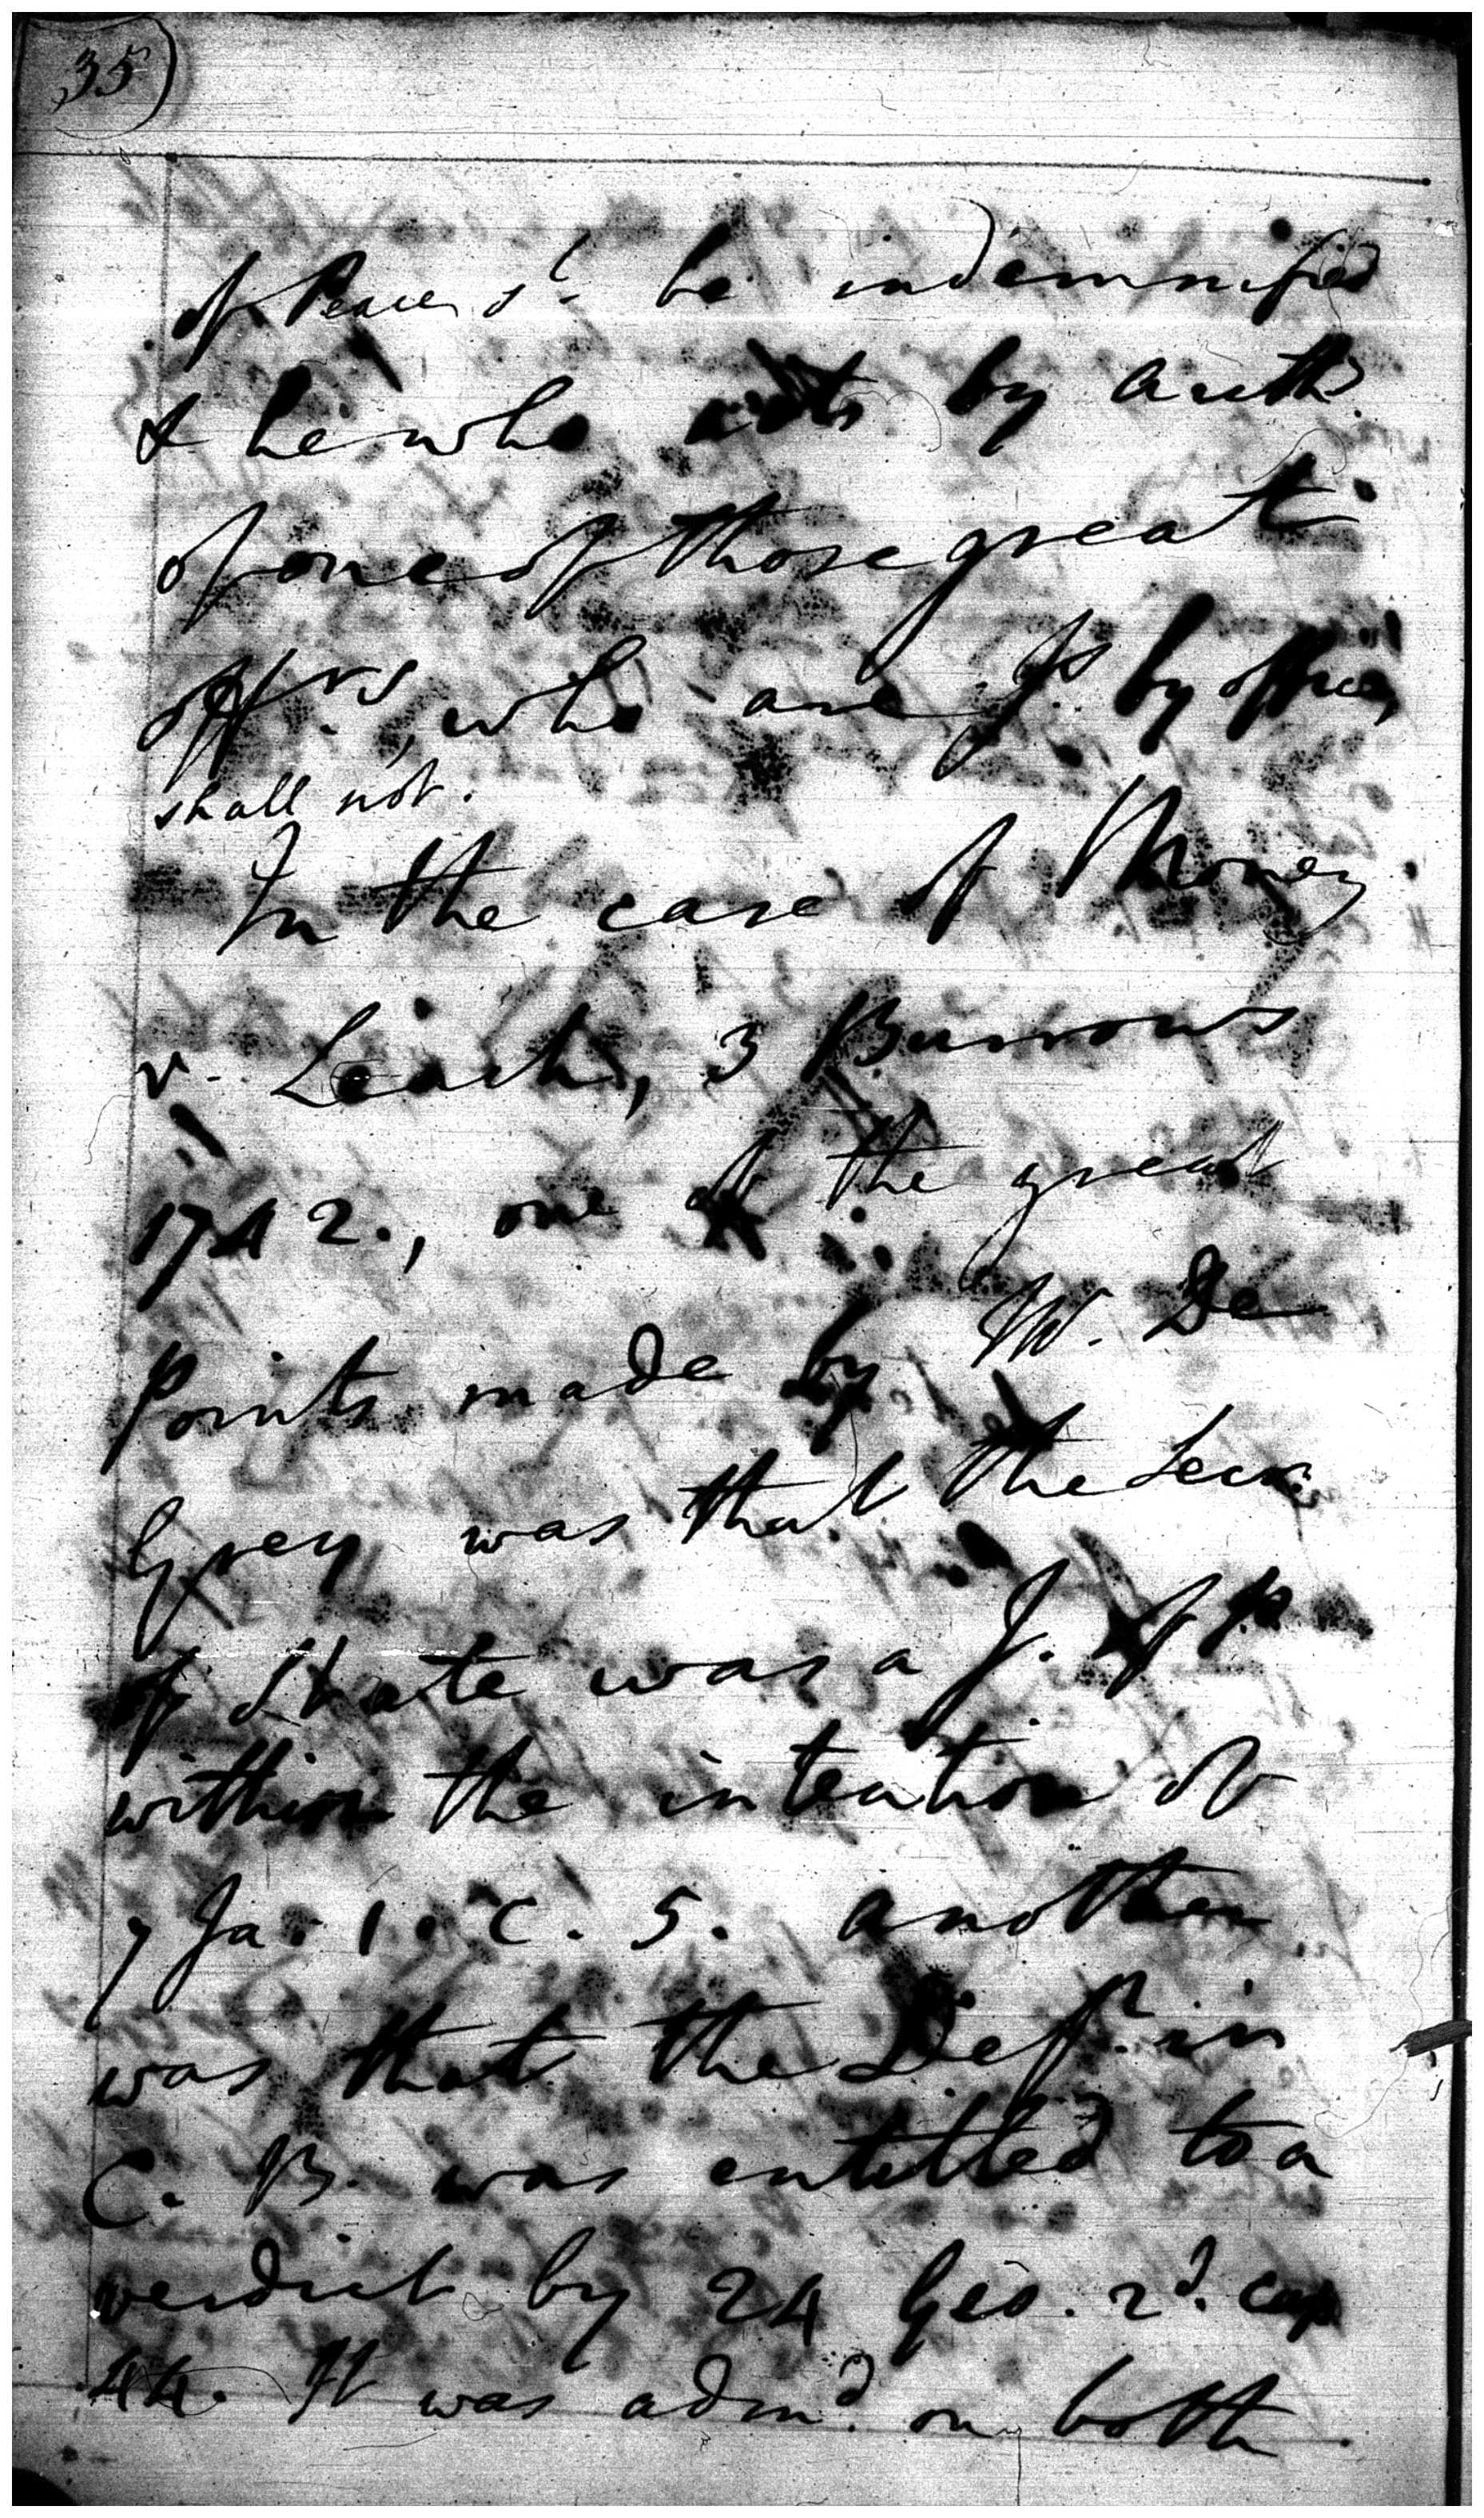 35
of Peace sd. be indemnified
& he who acts by auth.
of one of those great
offrs., who are Js. by office,
shall not.
In the case of Money
v. Leach, 3 Burrows
1742., one of the great
Points made by Mr. De
Grey was that the Secy.
of State was a J. of p.
within the intention of
7 Ja. 1. C. 5. another
was that the Deft. in
C. B. was entitled to a
verdict by 24 Geo. 2d. cap
44. It was admd. on both